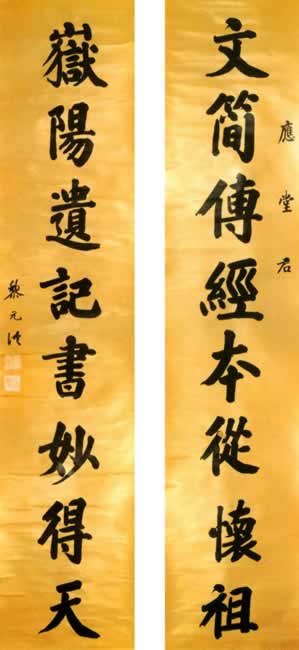 應堂君
文簡傳經本從懷祖
嶽陽遺記書妙得天
黎元洪